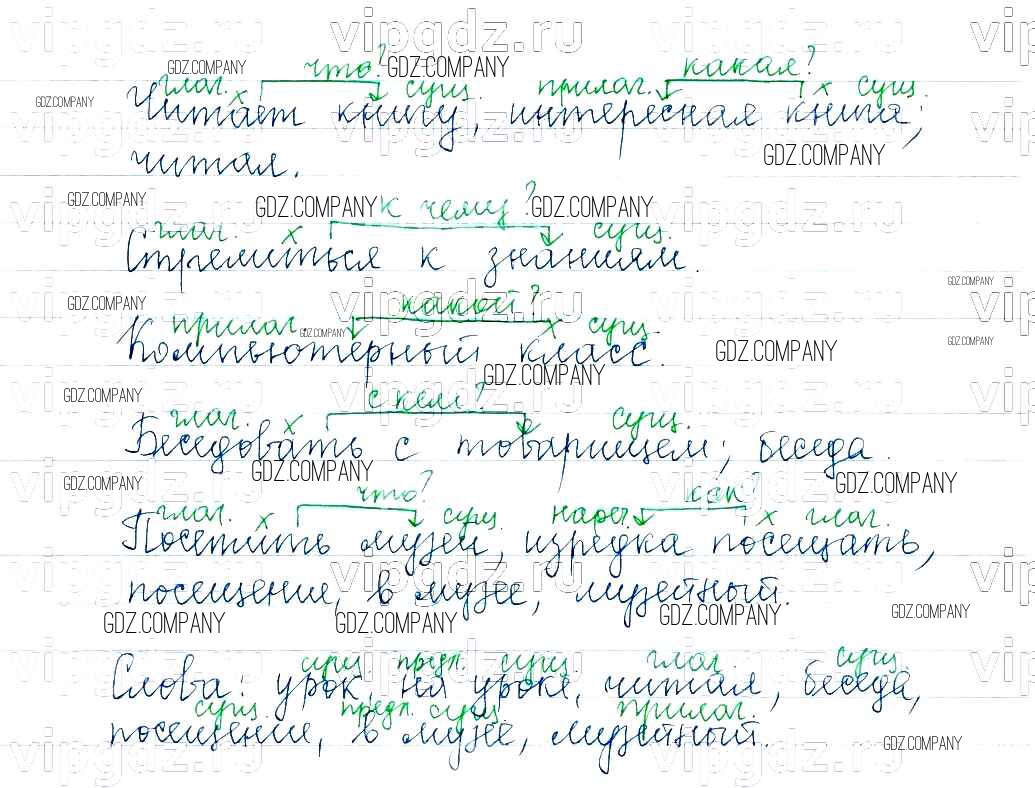 vipgdz.ru
что? какая?
глаг. х сущ. прилаг. х сущ.
Читает книгу, интересная книга;
читал.
к чему?
глаг. х сущ.
Стремиться к знаниям.
какой?
прилаг. х сущ.
Компьютерный класс.
с кем?
глаг. х сущ.
Беседовать с товарищем; беседа.
что? как?
глаг. х сущ. нареч. х глаг.
Посетить музей, изредка посещать,
посещение, в музее, музейный.
сущ. предл. сущ. глаг. сущ.
Слова: урок, на уроке, читал, беседа,
сущ. предл. сущ. прилаг.
посещение, в музее, музейный.
GDZ.COMPANY